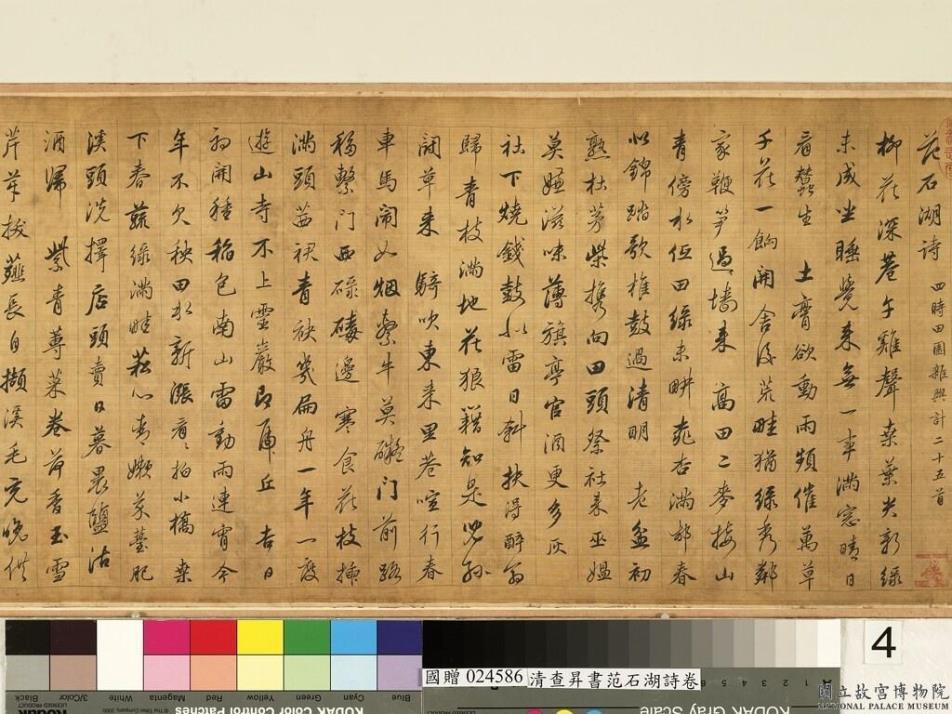 范石湖詩 四時田園雜興計二十五首
柳花深巷午雞聲桑葉尖新綠
未成坐睡覺來無一事滿窓晴日
看蠶生 土膏欲動雨頻催萬草
千花一餉開舍後荒畦猶綠秀鄰
家鞭笋過墻來 高田二麥接山
青傍水低田綠未畊桃杏滿邨春
似錦踏歌椎鼓過清明 老盆初
熟杜茅柴携向田頭祭社來巫媼
莫嫌滋味薄旗亭官酒更多灰
社下燒錢鼓似雷日斜扶得醉翁
歸青枝滿地花狼籍知是兒孫
鬭草來 騎吹東來里巷喧行春
車馬鬧如烟繫牛莫礙門前路
移繫門西碌碡邊 寒食花枝插
滿頭茜裙青袂幾扁舟一年一度
遊山寺不上靈巖即虎丘 吉日
初開種稻包南山雷動雨連宵今
年不欠秧田水新漲看〻拍小橋 桑
下春蔬綠滿畦菘心青嫩芥薹肥
溪頭洗擇店頭賣日暮裹鹽沽
酒歸 紫青蓴菜卷荷香玉雪
芹芽拔薤長自擷溪毛充晚供
4
國贈 024586 清查昇書范石湖詩卷
Black 3/Color White Magenta Red Yellow Green Cyan Blue
KODAK Color Control Patches
KODAK Gray Scale
國立故宮博物院
NATIONAL PALACE MUSEUM